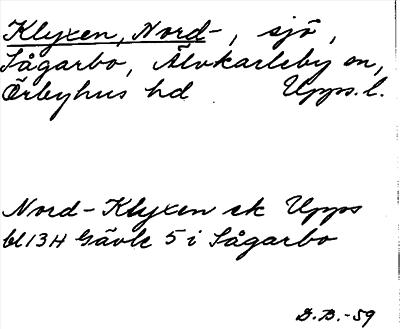 Klyxen, Nord-, sjö,
Sågarbo, Älvkarleby sn,
Örbyhus hd Upps. l.
Nord-Klyxen ek Upps
bl 13H Gävle 5 i Sågarbo
D.B.-59